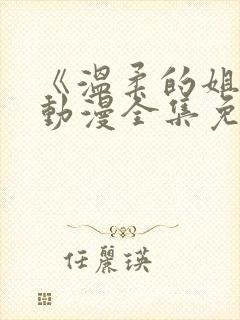 《温柔的姐
动漫全集免
任麗瑛